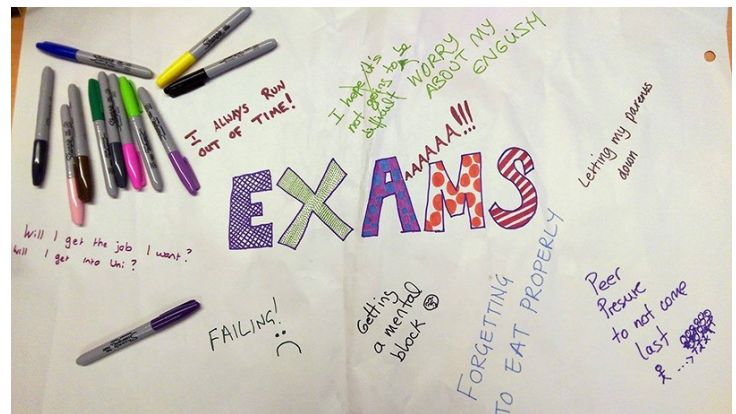 I ALWAYS RUN
OUT OF TIME!
I hope it's
not going to be
difficult
WORRY
ABOUT MY
ENGLISH
AAAAAA!!!
EXAMS
Letting my parents
down
Will I get the job I want?
Will I get into Uni?
FAILING!
Getting
a mental
block
FORGETTING
TO EAT PROPERLY
Peer
Pressure
to not come
last